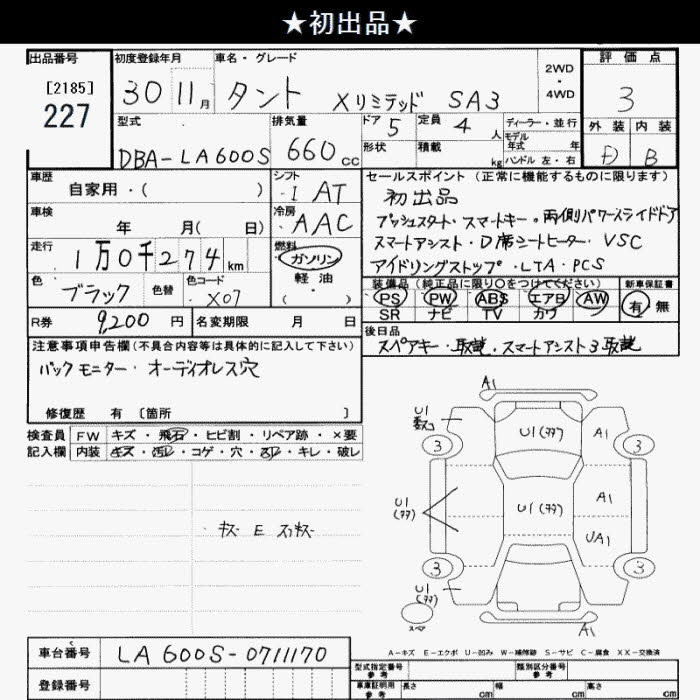 ★初出品★
出品番号 [2185] 227
初度登録年月 30 11月
車名・グレード タント Xリミテッド SA3
2WD・4WD
評価点 3
外装 内装 B
型式 DBA-LA600S
排気量 660cc
ドア 5 形状
定員 4人 積載 kg
ディーラー・並行
モデル年式 年
ハンドル 左・右
車歴 自家用・( )
シフト I AT
セールスポイント(正常に機能するものに限ります)
初出品
プッシュスタート・スマートキー・両側パワースライドドア
スマートアシスト・D席シートヒーター・VSC
アイドリングストップ・LTA・PCS
車検 年 月( 日)
冷房 AAC
走行 1万0千274km
燃料 ガソリン
軽油
・( )
色 ブラック 色替 色コード X07
装備品(純正品に限り〇をつけてください) 新車保証書
PS PW ABS エアB AW 有 無
SR ナビ TV カワ
R券 9,200円 名変期限 月 日
後日品
スペアキー・取説・スマートアシスト3取説
注意事項申告欄(不具合内容等は具体的に記入して下さい)
バックモニター・オーディオレス穴
修復歴 有 〔箇所 〕
検査員 FW キズ・飛石・ヒビ割・リペア跡・×要
記入欄 内装 キズ・汚レ・コゲ・穴・スレ・キレ・破レ
キズ E スリキズ
A1
U1
U1(ﾀﾀ) A1
3 3
U1(ﾀﾀ) U1(ﾀﾀ) A1
UA1
3 3
U1(ﾀﾀ)
スペア
A1
A-キズ E-エクボ U-凹み W-補修跡 S-サビ C-腐食 XX-交換済
車台番号 LA600S-0711170
登録番号
型式指定番号参考 類別区分番号参考
車庫証明用参考 長さ cm 幅 cm 高さ cm